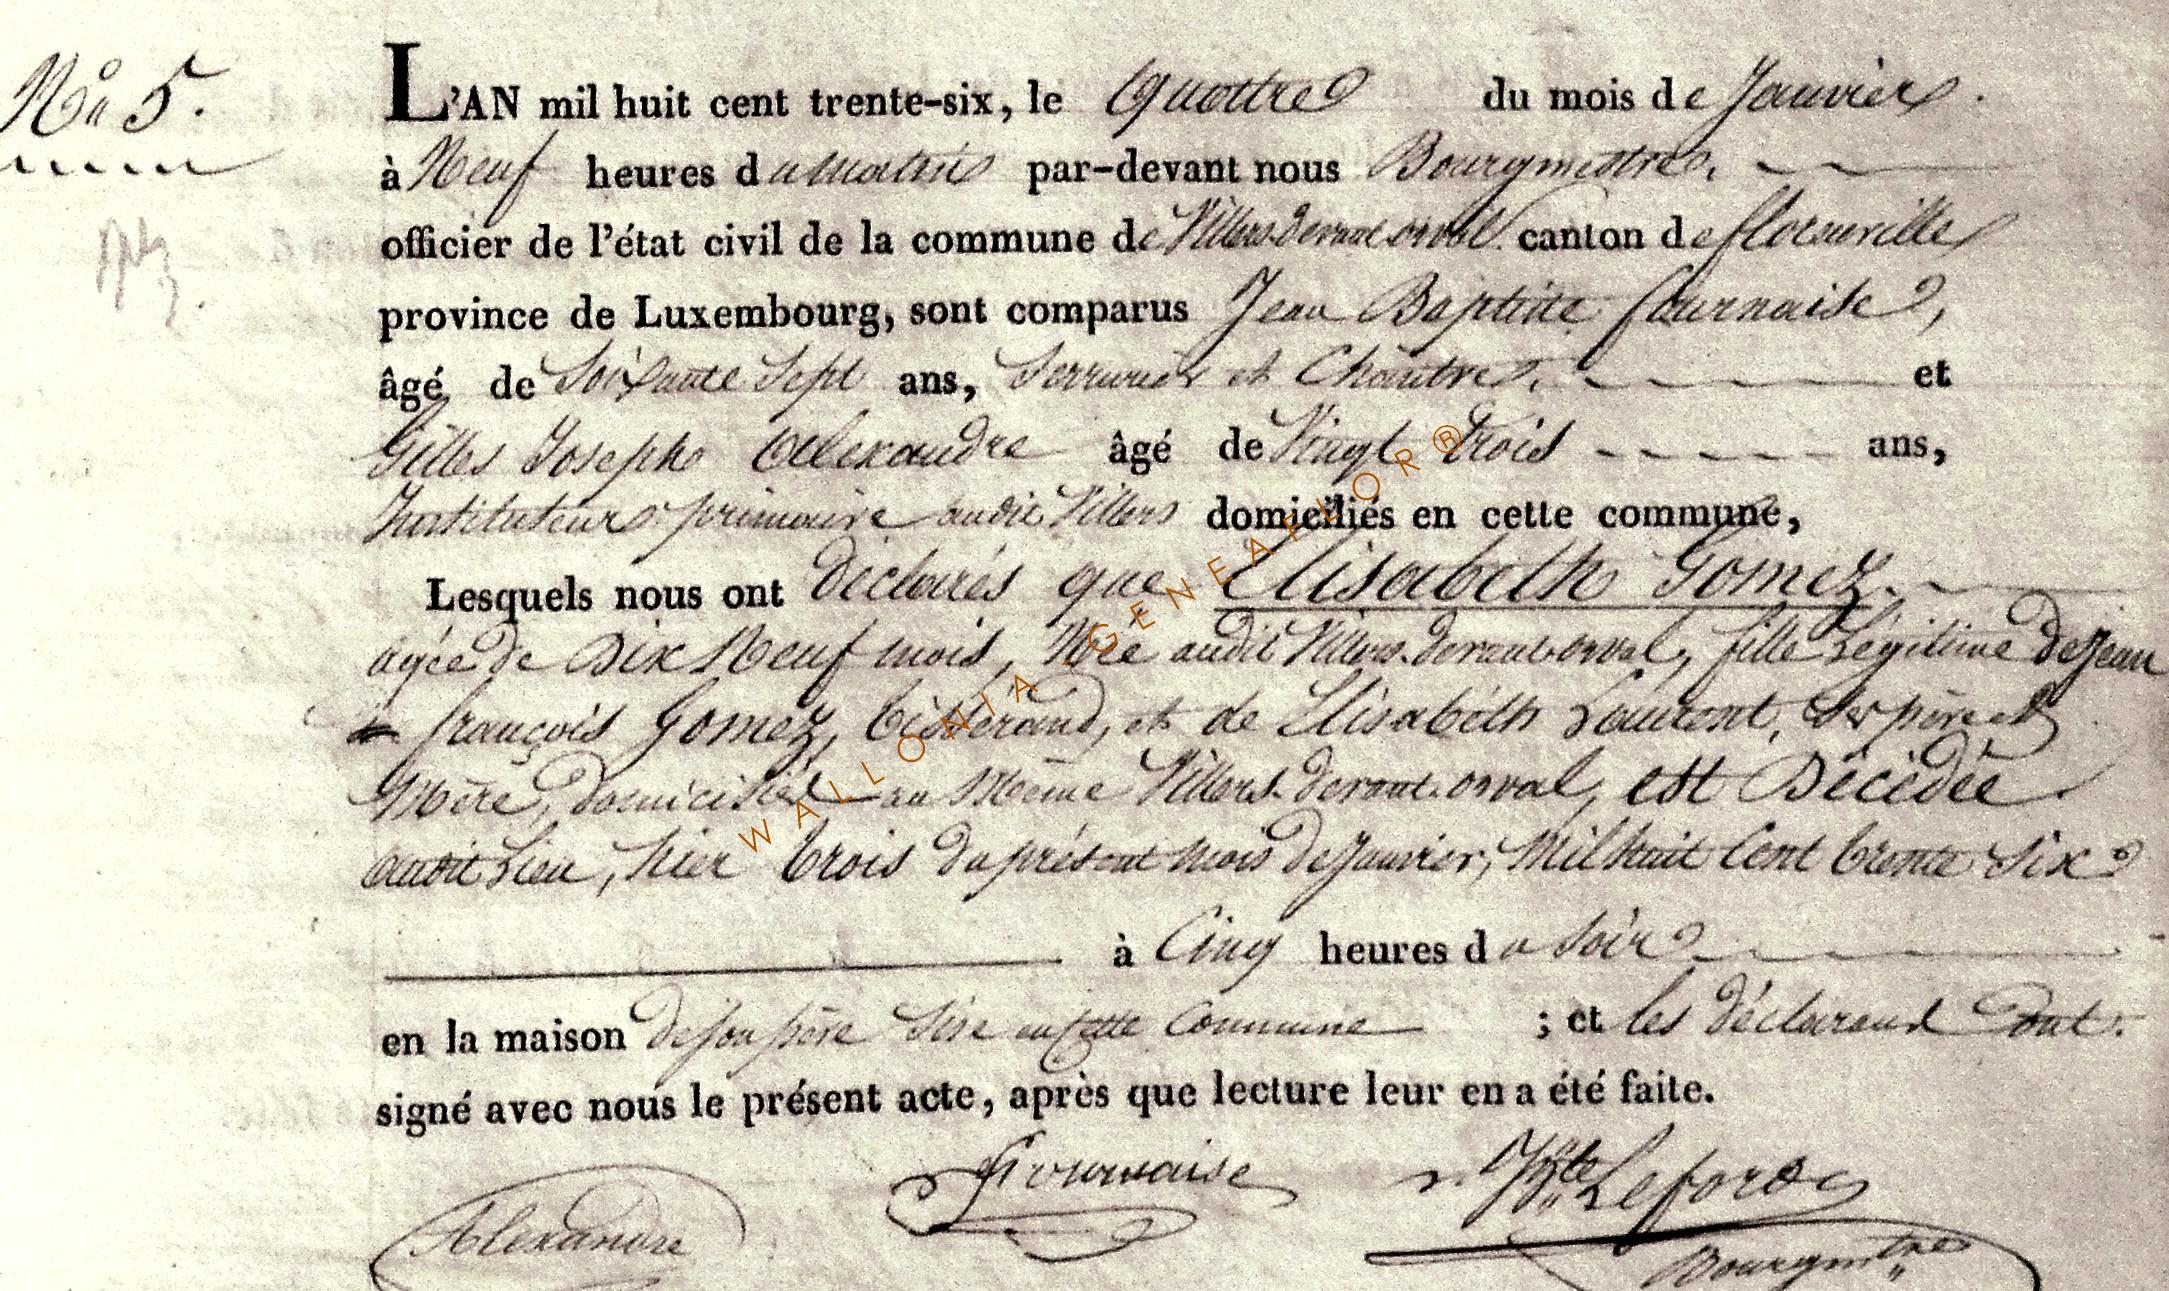 No 5.
L'AN mil huit cent trente-six, le Quattre du mois de Janvier.
à Neuf heures du matin par-devant nous Bourgmestre,
officier de l'état civil de la commune de Villers devant orval. canton de florenville
province de Luxembourg, sont comparus Jean Baptiste fournaise,
âgé de Soixante Sept ans, Serrurier et Chantre, et
Gilles Josephe Alexandre âgé de Vingt trois ans,
Instituteur primaire audit Villers domiciliés en cette commune,
Lesquels nous ont déclarés que Elisabeth Gomez.
agée de Dix Neuf mois, Née audit Villers-devant-orval, fille Légitime de Jean
françois Gomez, tisserand, et de Elisabéth Laurent, ses père et
Mère, domiciliés au Même Villers-devant-orval, est Décédée
audit Lieu, hier trois du présent mois de Janvier, Mil huit Cent trente Six
à Cinq heures du soir
en la maison de son père Sise en cette Commune ; et les déclarand ont.
signé avec nous le présent acte, après que lecture leur en a été faite.
Alexandre Fournaise Jn Bte Leforog
Bourgmtre
WALLONIA GENEAFLOR®